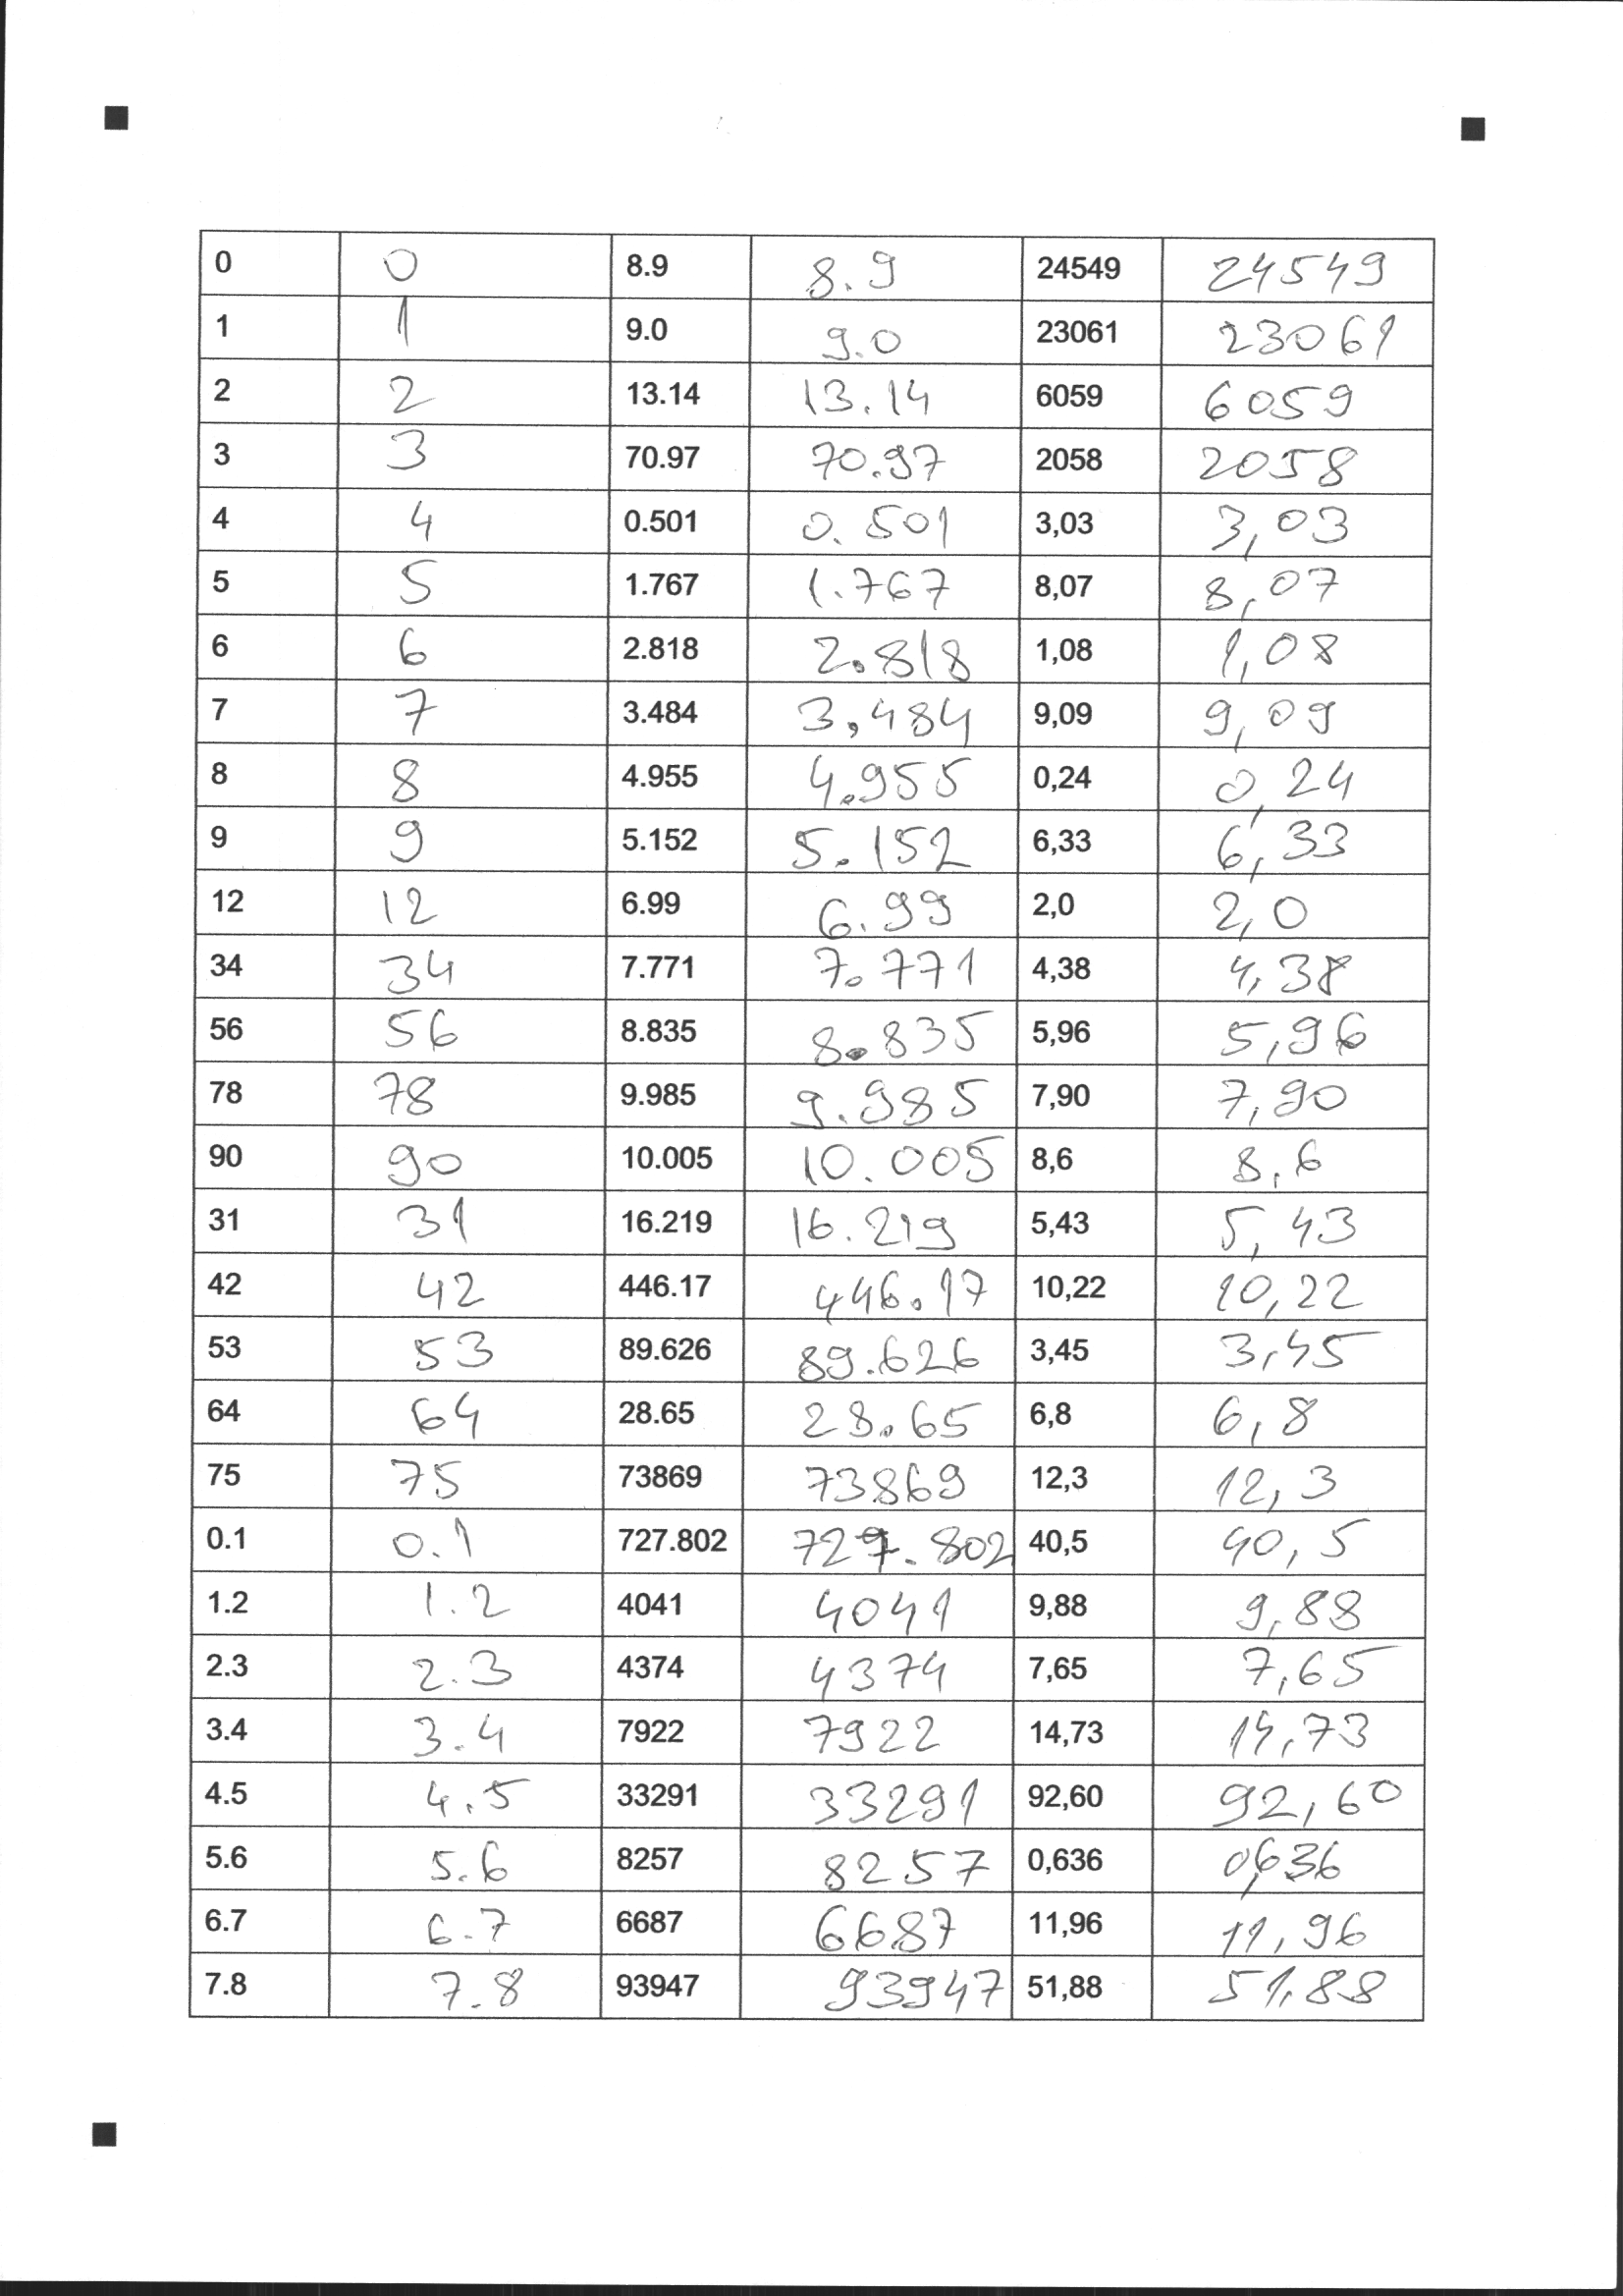 0 0 8.9 8.9 24549 24549
1 1 9.0 9.0 23061 23061
2 2 13.14 13.14 6059 6059
3 3 70.97 70.97 2058 2058
4 4 0.501 0.501 3,03 3,03
5 5 1.767 1.767 8,07 8,07
6 6 2.818 2.818 1,08 1,08
7 7 3.484 3,484 9,09 9,09
8 8 4.955 4.955 0,24 0,24
9 9 5.152 5.152 6,33 6,33
12 12 6.99 6.99 2,0 2,0
34 34 7.771 7.771 4,38 4,38
56 56 8.835 8.835 5,96 5,96
78 78 9.985 9.985 7,90 7,90
90 90 10.005 10.005 8,6 8,6
31 31 16.219 16.219 5,43 5,43
42 42 446.17 446.17 10,22 10,22
53 53 89.626 89.626 3,45 3,45
64 64 28.65 28.65 6,8 6,8
75 75 73869 73869 12,3 12,3
0.1 0.1 727.802 727.802 40,5 40,5
1.2 1.2 4041 4041 9,88 9,88
2.3 2.3 4374 4374 7,65 7,65
3.4 3.4 7922 7922 14,73 14,73
4.5 4.5 33291 33291 92,60 92,60
5.6 5.6 8257 8257 0,636 0,636
6.7 6.7 6687 6687 11,96 11,96
7.8 7.8 93947 93947 51,88 51,88